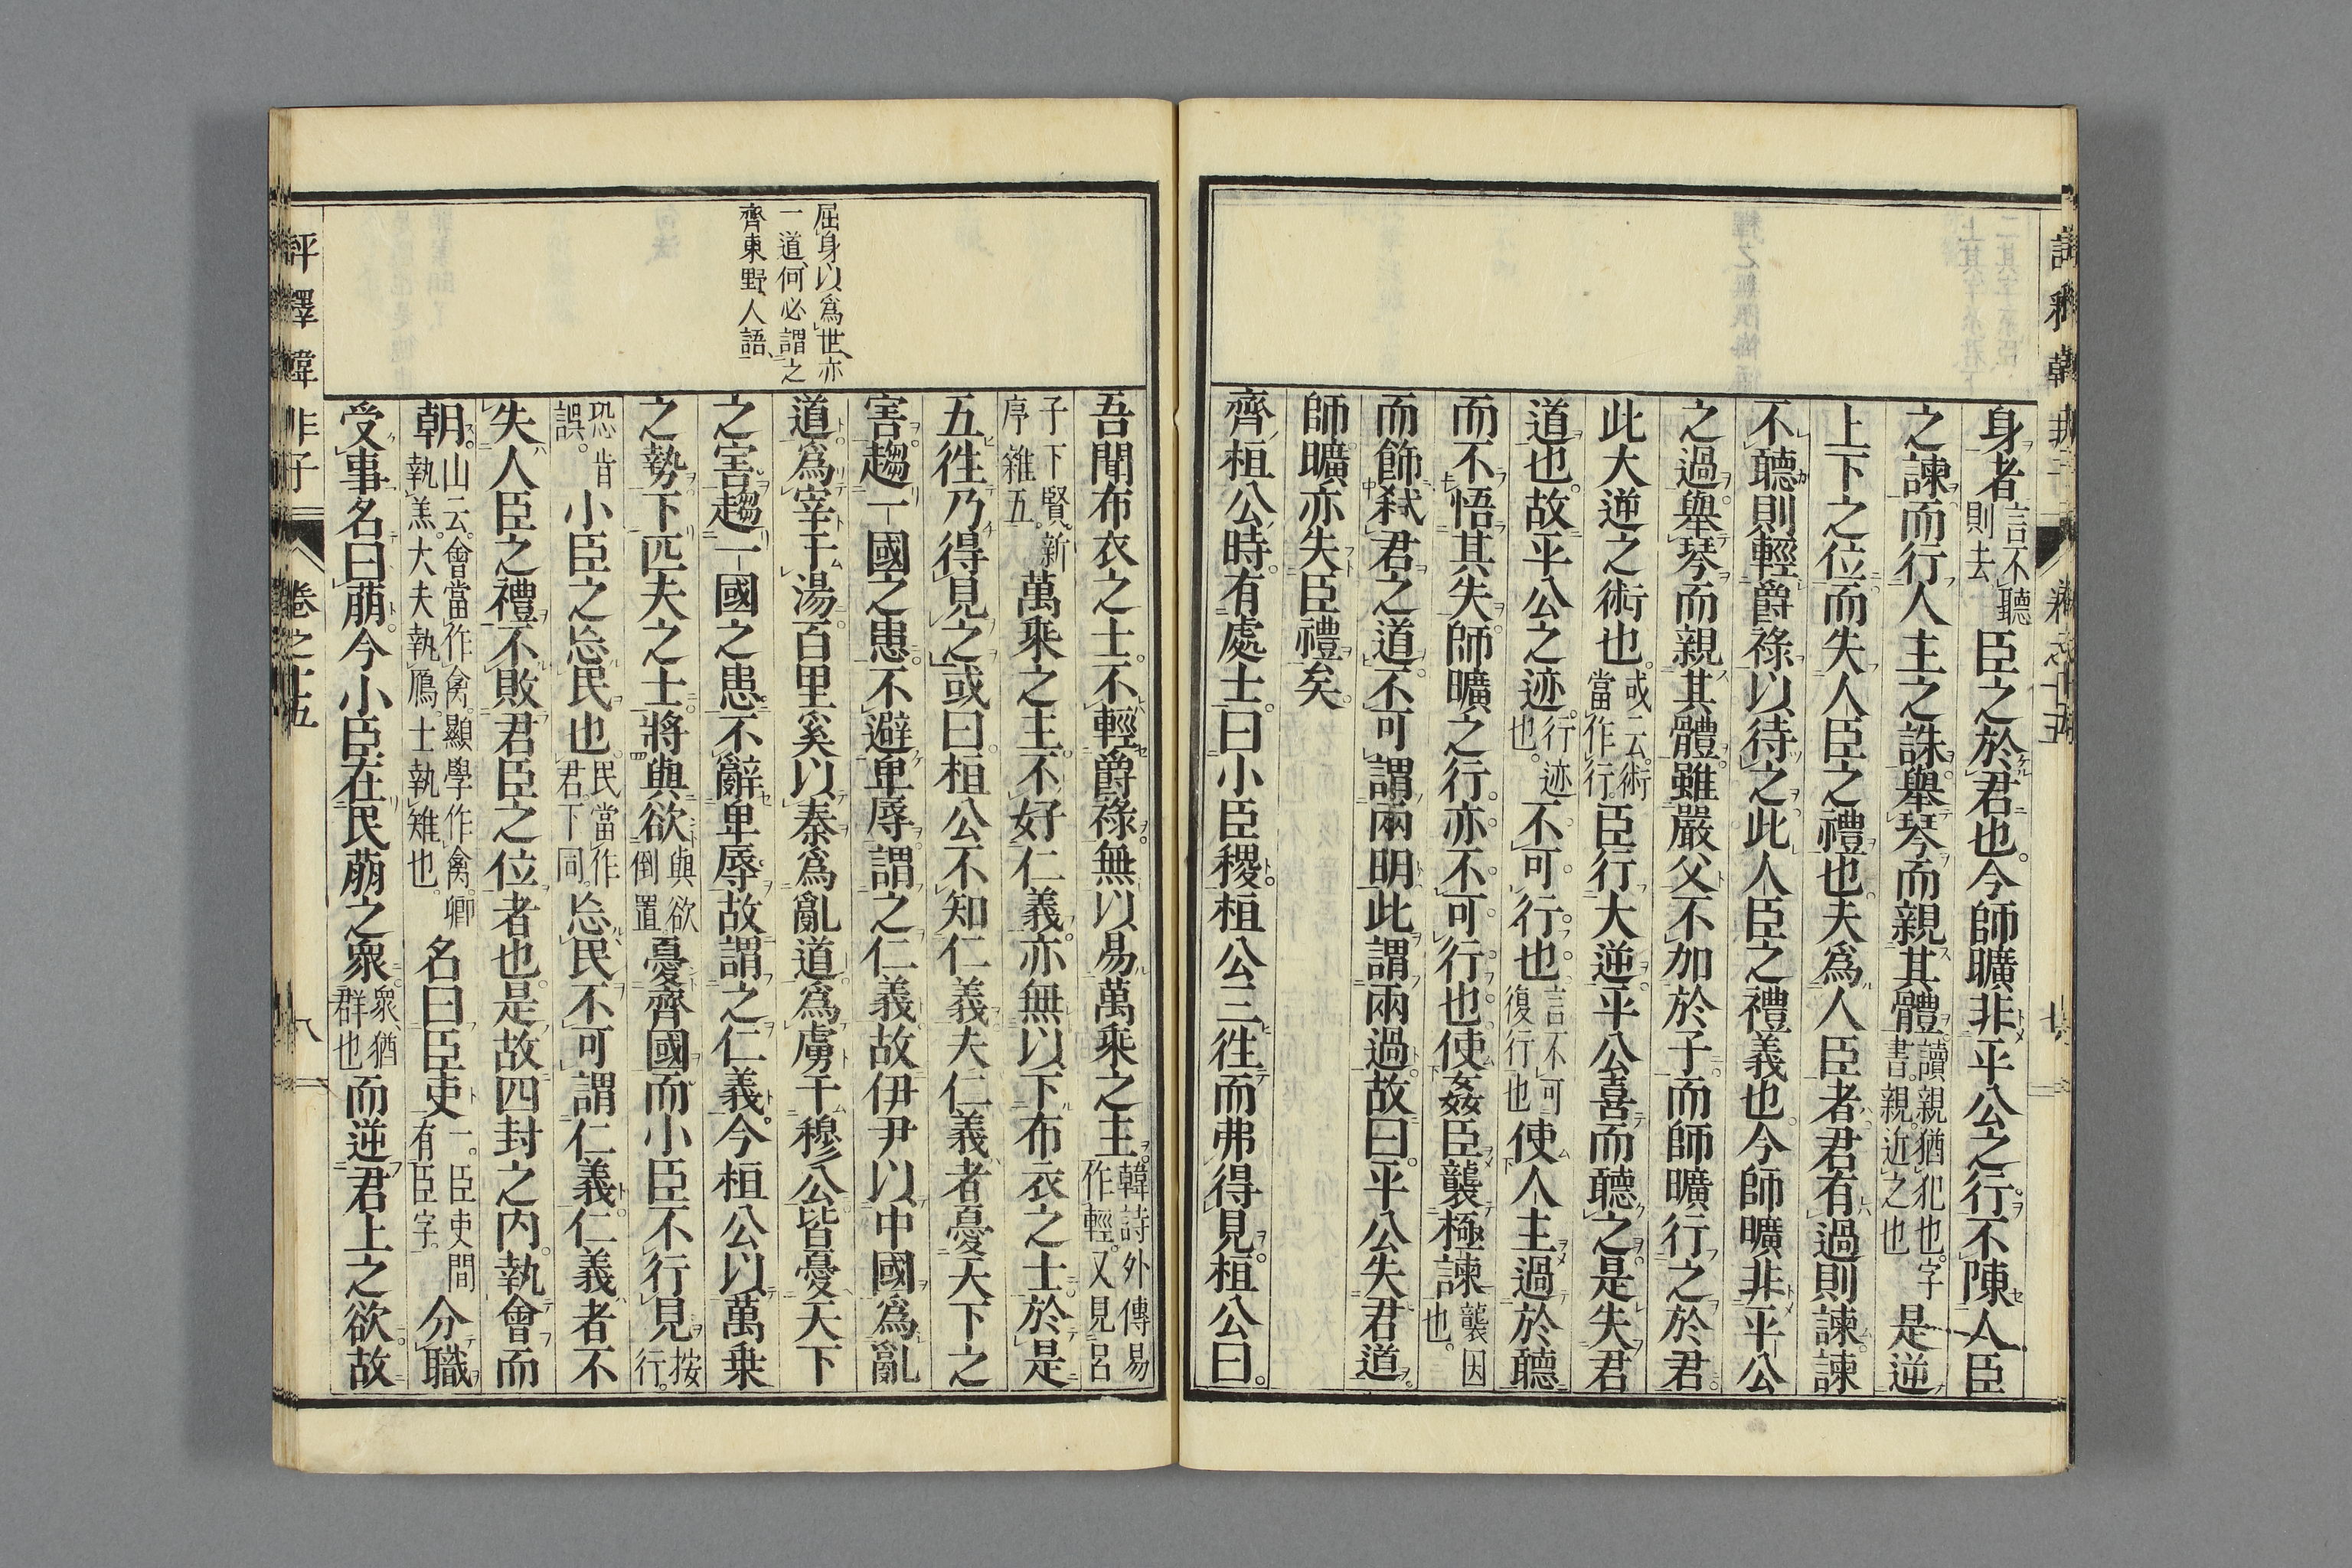 身者言不聽則去臣之於君也。今師曠非平公之行。不陳人臣
之諫。而行人主之誅。舉琴而親其體。讀親猶犯也。字書。親。近之也是逆
上下之位。而失人臣之禮也。夫爲人臣者。君有過則諫。諫
不聽則輕爵祿以待之。此人臣之禮義也。今師曠非平公
之過。舉琴而親其體。雖嚴父不加於子。而師曠行之於君。
此大逆之術也。或云。術當作行。臣行大逆。平公喜而聽之。是失君
道也。故平公之迹。行迹也。不可行也。言不可復行也使人主過於聽
而不悟其失。師曠之行。亦不可行也。使姦臣襲極諫襲因也。
而飾弒君之道。不可謂兩明。此謂兩過。故曰。平公失君道。
師曠亦失臣禮矣。
齊桓公時。有處士。曰小臣稷。桓公三往而弗得見。桓公曰。
吾聞布衣之士。不輕爵祿。無以易萬乘之主。韓詩外傳易作輕。又見呂
子下賢新序雜五。萬乘之主。不好仁義。亦無以下布衣之士。於是
五往乃得見之。或曰。桓公不知仁義。夫仁義者。憂天下之
害。趨一國之患。不避卑辱。謂之仁義。故伊尹以中國爲亂。
道爲宰于湯。百里奚以秦爲亂。道爲虜于穆公。皆憂天下
之害。趨一國之患。不辭卑辱。故謂之仁義。今桓公以萬乘
之勢。下匹夫之士。將與欲與欲倒置憂齊國。而小臣不行見。按行。
恐肯誤。小臣之忘民也。民當作君下同。忘民不可謂仁義。仁義者。不
失人臣之禮。不敗君臣之位者也。是故四封之内。執會而
朝。山云。會當作禽。顯學作禽。卿執羔。大夫執鴈。士執雉也。名曰臣吏一。臣吏間有臣字。分職
受事名曰萠。今小臣在民萠之衆。衆猶群也而逆君上之欲。故
屈身以爲世亦
一道、何必謂之
齊東野人語、
評釋韓非子
卷之十五
八